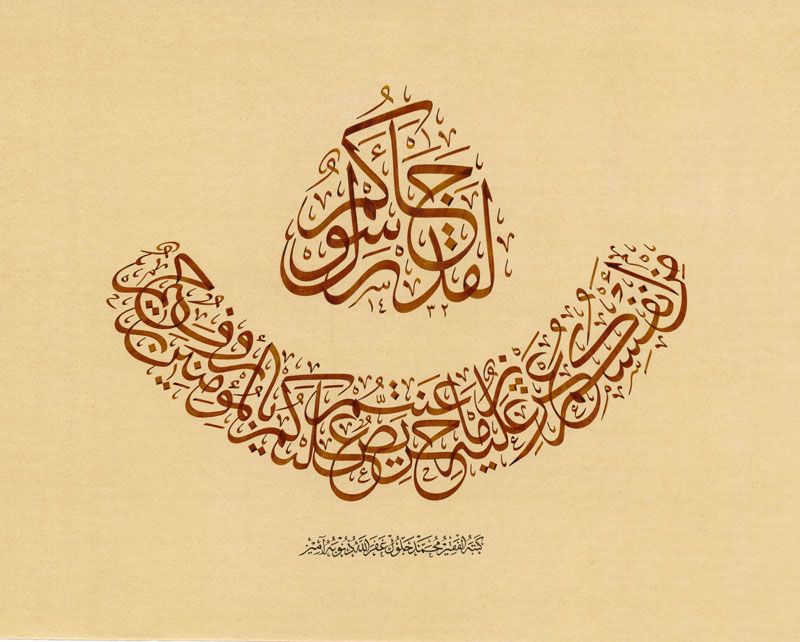 لقد جاءكم رسول
١٤٣٢
من أنفسكم عزيز عليه ما عنتم حريص عليكم بالمؤمنين رءوف رحيم
كتبه الفقير محمد جلول غفر الله ذنوبه آمين